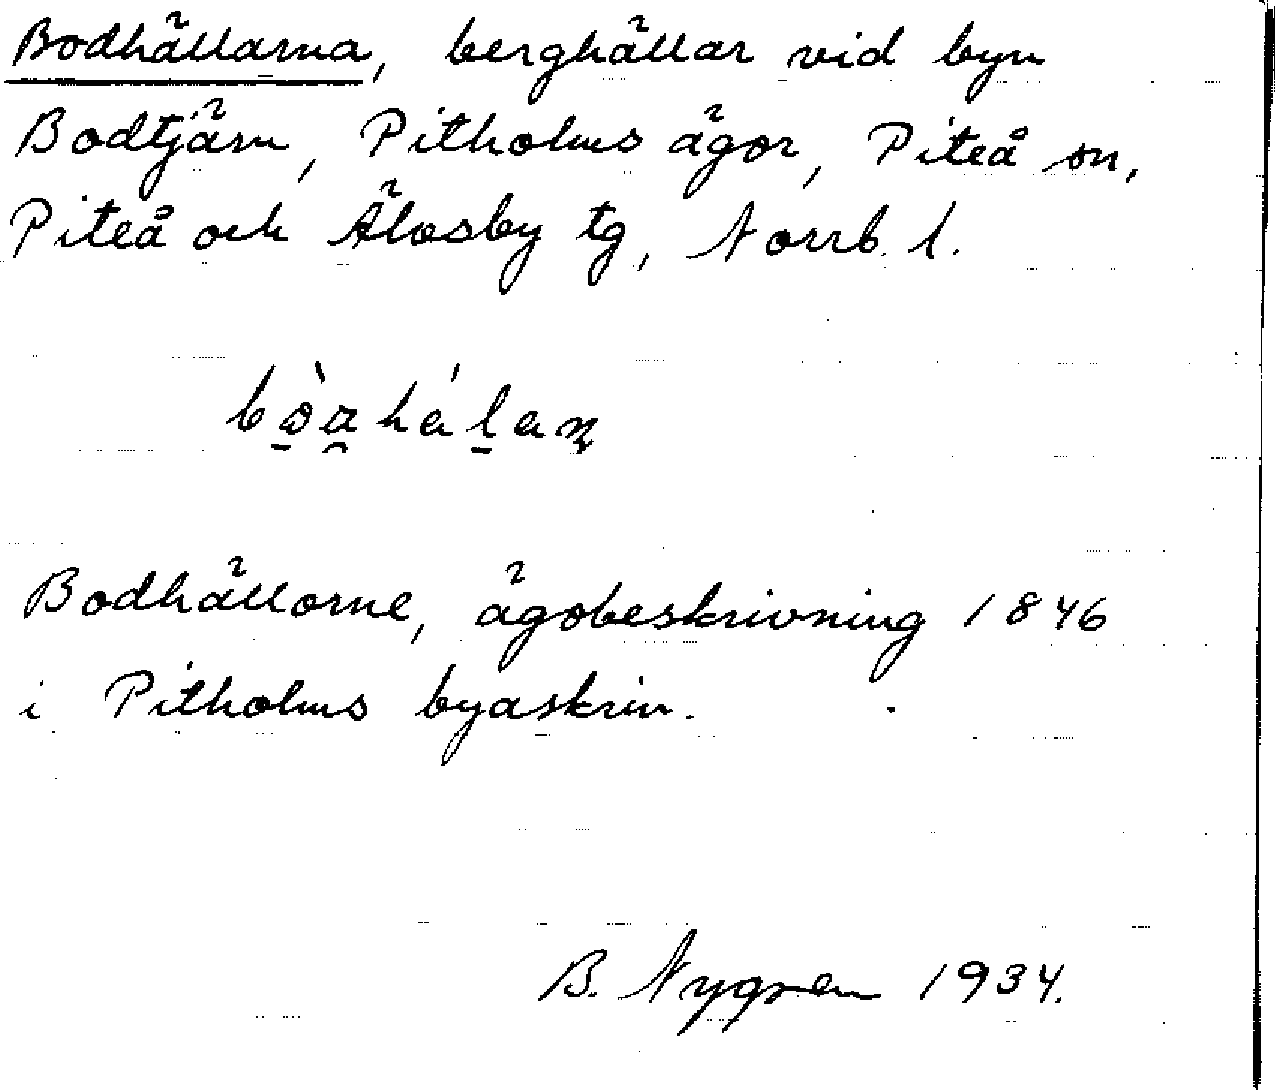 Bodhällarna, berghällar vid byn
Bodtjärn, Pitholms ägor, Piteå sn,
Piteå och Älvsby tg, Norrb. l.
Bodhällorne, ägobeskrivning 1846
i Pitholms byaskrin.
B. Nygren 1934.